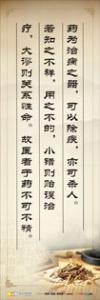 药为治病之器，可以除疾，亦可杀人。
若知之不祥，用之不的，小错则贻误治
疗，大谬则关系性命。故医者于药不可不精。